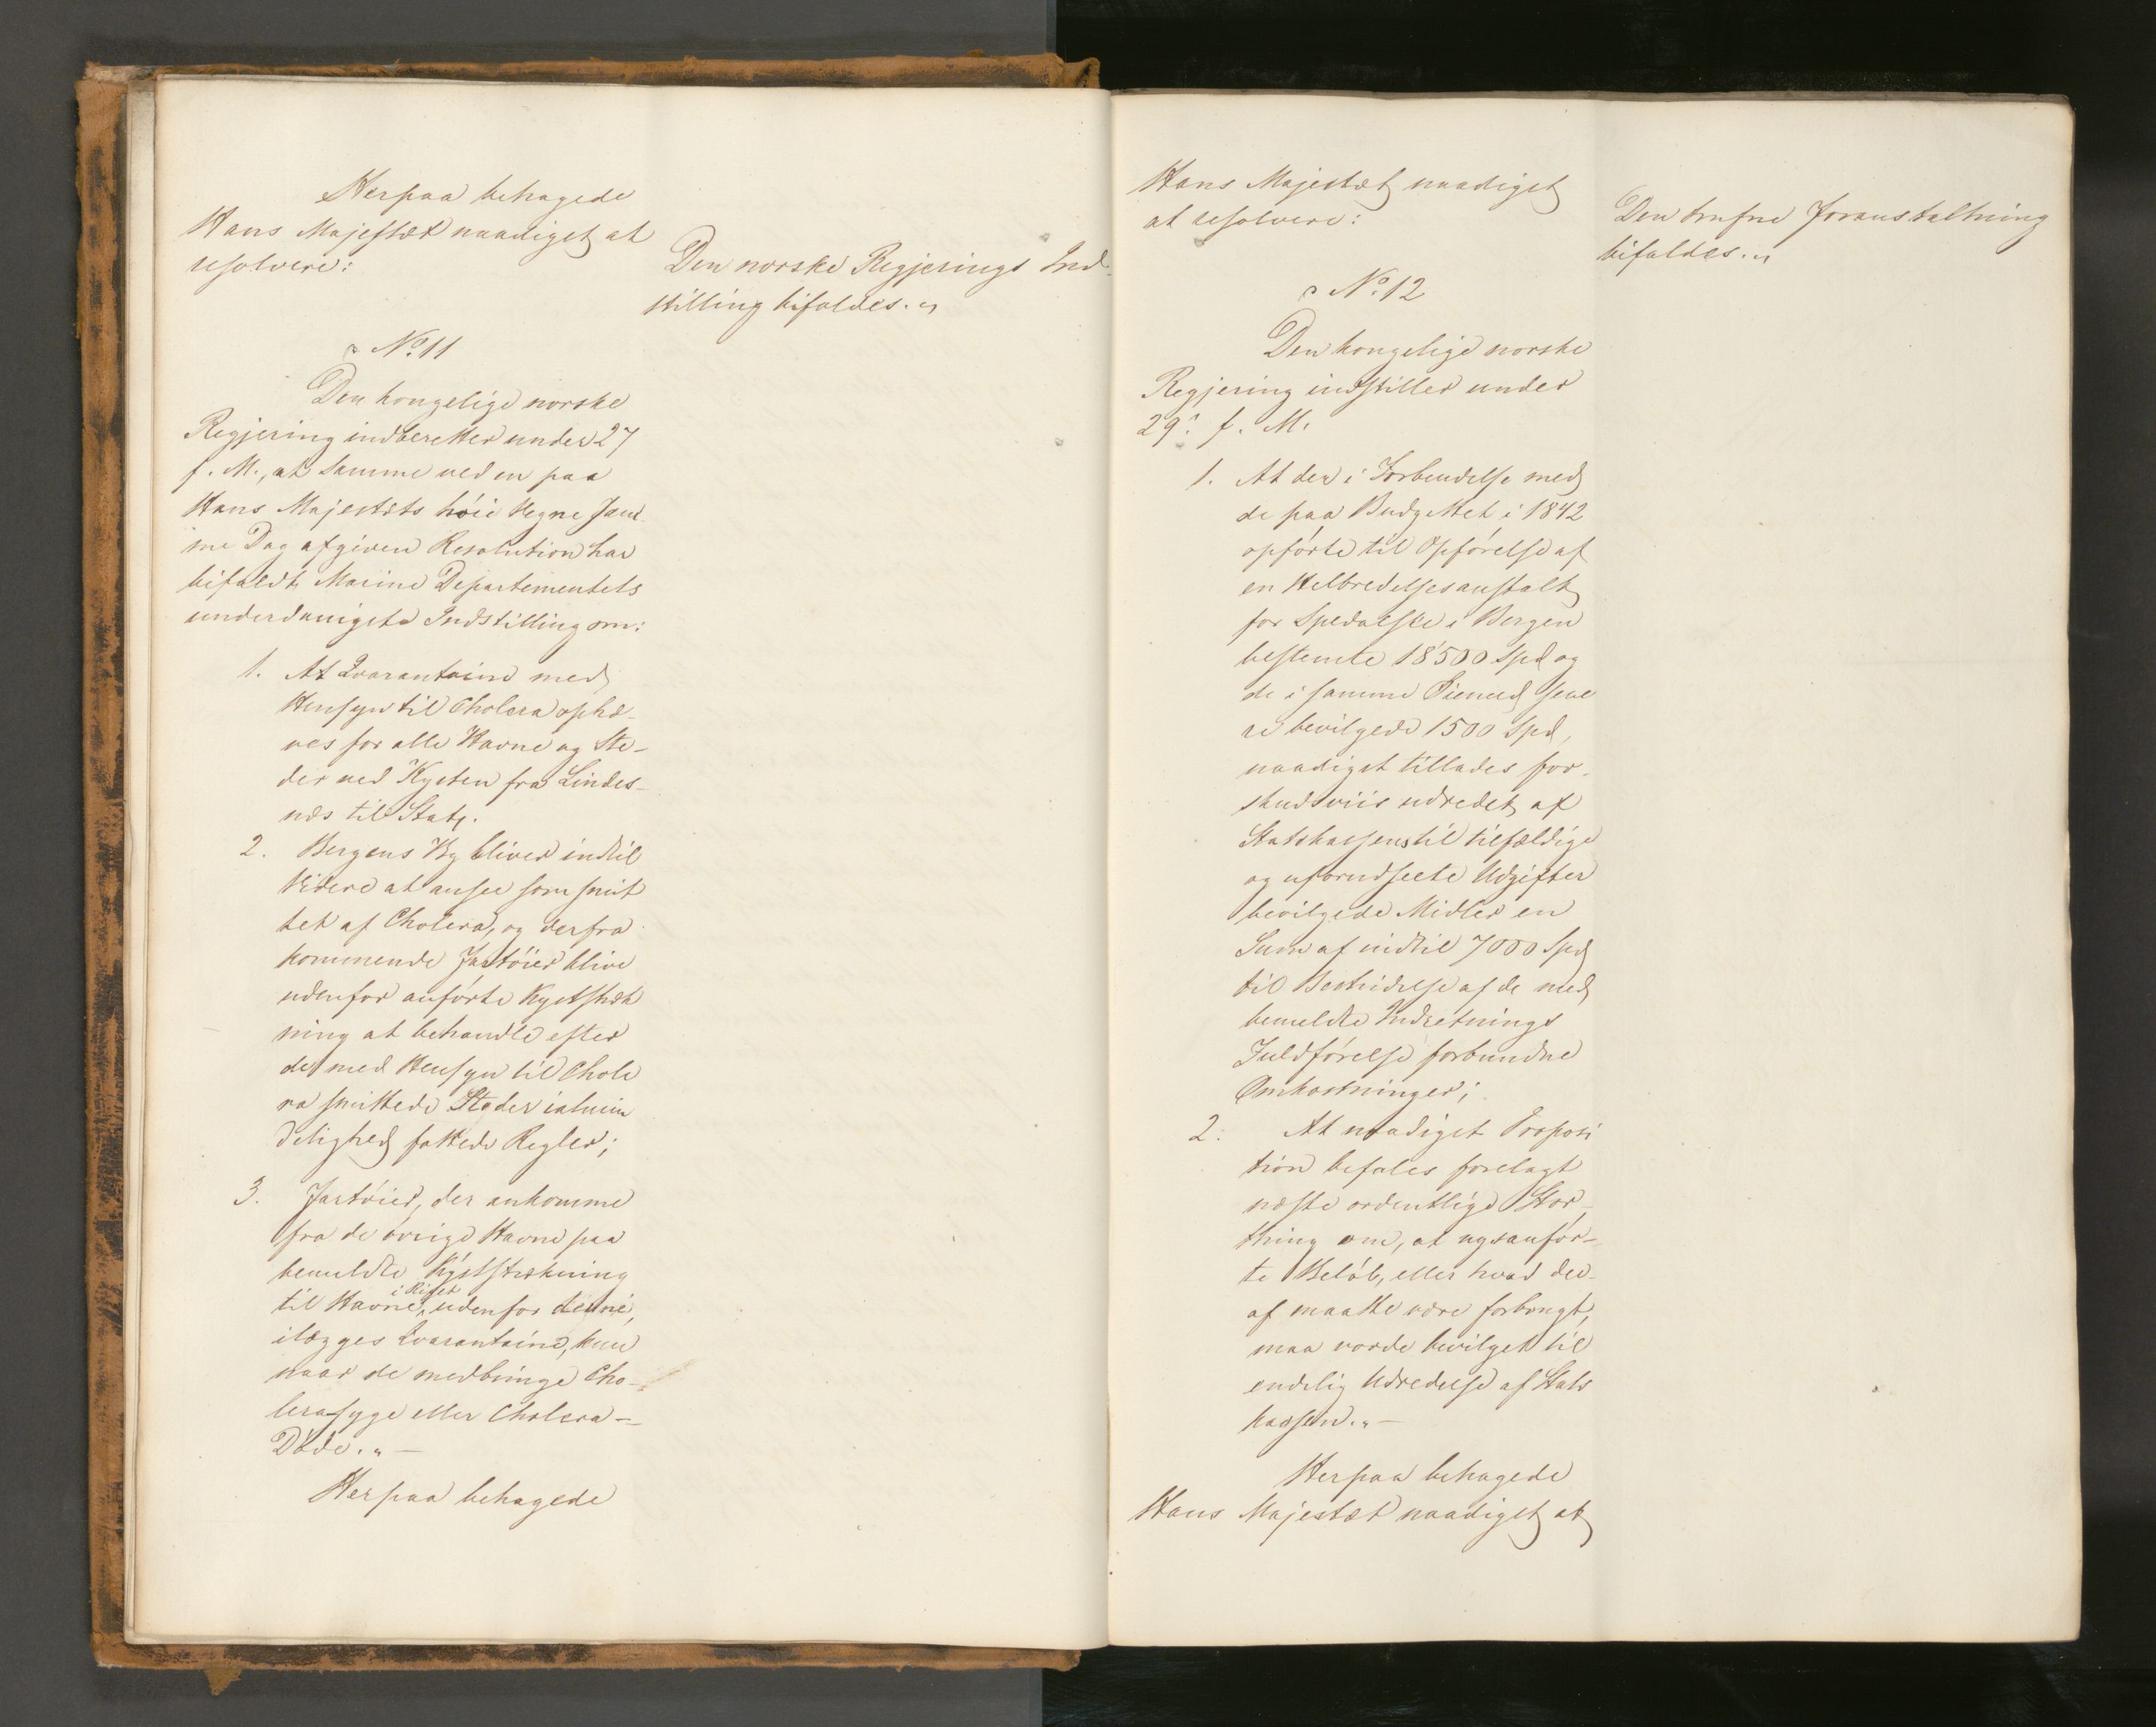 Herpaa behagede
Hans Majestæt naadigst at
resolvere:
Den norske Regjerings Ind-
stilling bifaldes.
No. 11
Den kongelige norske
Regjering indberetter under 27
f. M., at samme ved en paa
Hans Majestæts høie Vegne sam-
me Dag afgiven Resolution har
bifaldt Marine Departementets
underdanigste Indstilling om:
1. At Qvarantaine med
Hensyn til Cholera ophæ-
ves for alle Havne og Ste-
der ved Kysten fra Lindes-
næs til Stat.
2. Bergens By bliver indtil
Videre at ansee som smit
tet af Cholera, og derfra
kommende Fartøier blive
udenfor anførte Kyststræk
ning at behandle efter
de med Hensyn til Chole
ra smittede Steder ialmin
delighed fattede Regler;
3. Fartøier, der ankomme
fra de øvrige Havne paa
bemeldte Kyststrækning
til Havne i Riget, udenfor denne,
ilægges Qvarantaine, kun
naar de medbringe Cho-
lerasyge eller Cholera-
Døde. „ —
Herpaa behagede
Hans Majestæt naadigst
at resolvere:
Den trufne Foranstaltning
bifaldes.
No. 12
Den kongelige norske
Regjering indstiller under
29. f. M.
1. At der i Forbindelse med
de paa Budgettet i 1842
opførte til Opførelse af
en Helbredelsesanstalt
for Spedalske i Bergen
bestemte 18500 Spd og
de i samme Øiemed sene
re bevilgede 1500 Spd,
naadigst tillades for-
skudsviis udredet af
Statskassens til tilfældige
og uforudseete Udgifter
bevilgede Midler en
Sum af indtil 7000 Spd
til Bestridelse af de med
bemeldte Indretnings
Fuldførelse forbundne
Omkostninger;
2. At naadigst Proposi
tion befales forelagt
næste ordentlige Stor-
thing om, at nysanfør-
te Beløb, eller hvad der-
af maatte være forbrugt,
maa vorde bevilget til
endelig Udredelse af Stats
kassen. „ —
Herpaa behagede
Hans Majestæt naadigst at